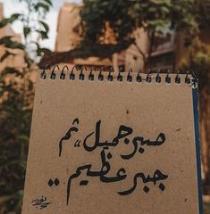 صبر جميل، ثم
جبر عظيم..